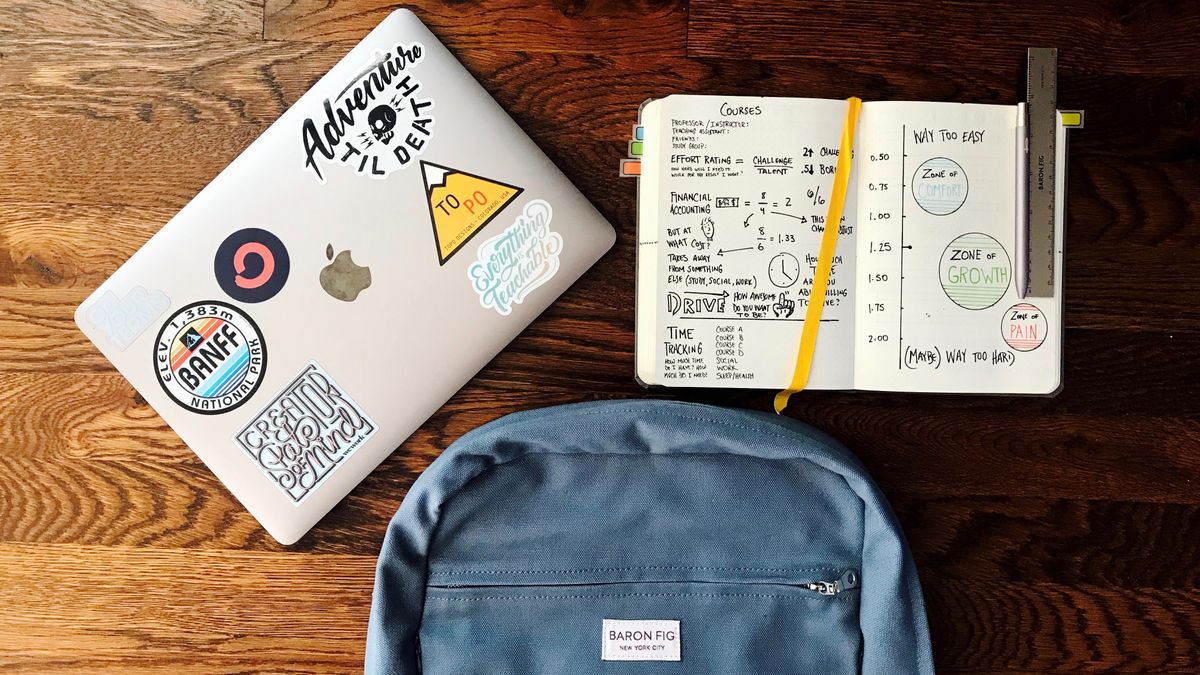 Adventure
'TIL DEATH
TO PO
TOPO DESIGNS - COLORADO, USA
Everything
is
Teachable
ELEV. 1,383m
BANFF
NATIONAL PARK
CREATOR
Pala
of Mind
wework
COURSES
PROFESSOR/INSTRUCTOR:
TEACHING ASSISTANT:
FRIENDS:
STUDY GROUP:
EFFORT RATING = CHALLENGE
TALENT
HOW HARD WILL I NEED TO
WORK FOR THE RESULT I WANT?
FINANCIAL
ACCOUNTING
8
4
= 2
6/6
BUT AT
WHAT COST?
8
6
= 1.33
TAKES AWAY
FROM SOMETHING
ELSE (STUDY, SOCIAL, WORK)
THIS CAN
HOW MUCH
DRIVE
HOW AWESOME
DO YOU WANT
TO BE?
TIME
TRACKING
HOW MUCH TIME
DO I HAVE? HOW
MUCH DO I NEED?
COURSE A
COURSE B
COURSE C
COURSE D
SOCIAL
WORK
SLEEP/HEALTH
WAY TOO EASY
0.50
0.75
1.00
1.25
1.50
1.75
2.00
ZONE OF
COMFORT
ZONE OF
GROWTH
ZONE OF
PAIN
(MAYBE) WAY TOO HARD
BARON FIG
BARON FIG
NEW YORK CITY